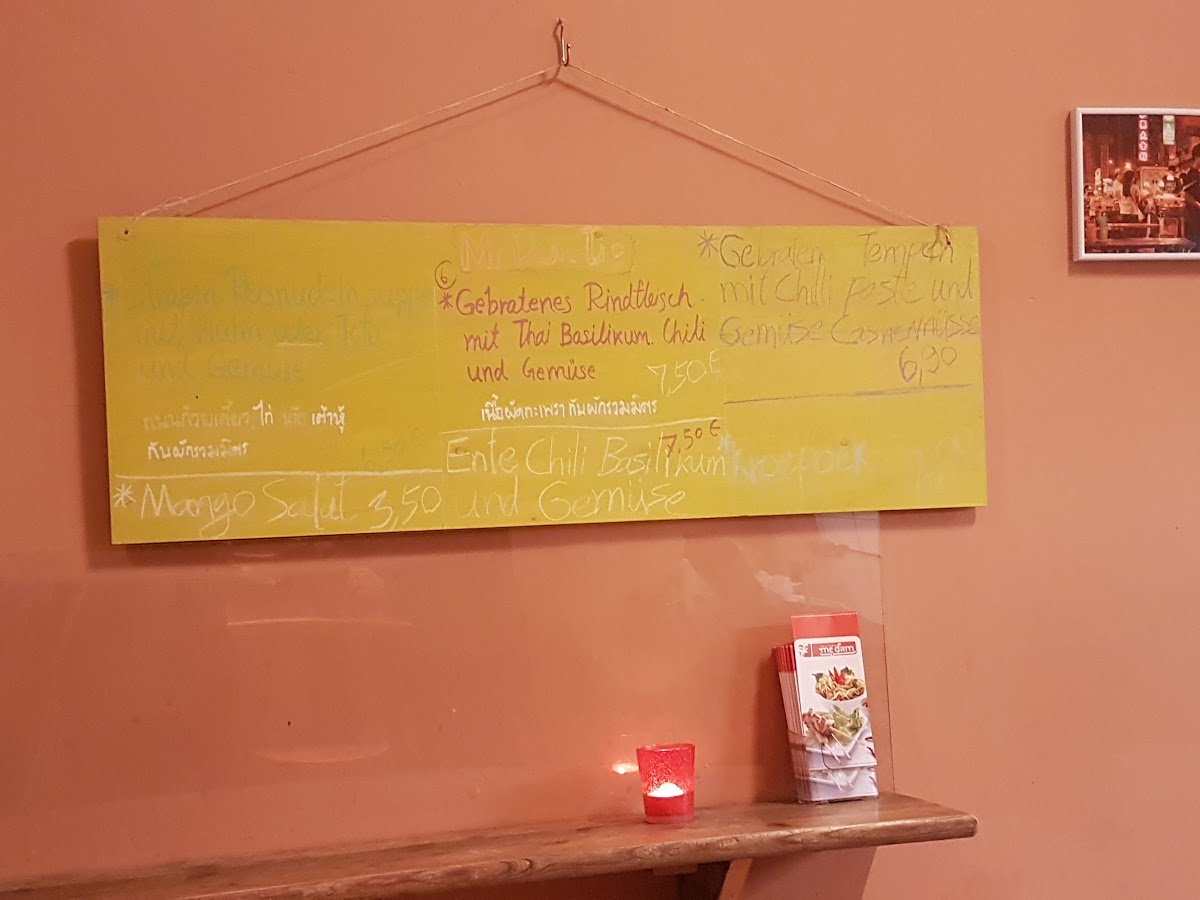 * Strassen Reisnudeln suppe
mit Huhn oder Tofu
und Gemüse
ถนนก๋วยเตี๋ยว, ไก่ หรือ เต้าหู้
กับผักรวมมิตร
6,50 €
* Mango Salat 3,50
6
* Gebratenes Rindfleisch
mit Thai Basilikum, Chili
und Gemüse
7,50 €
เนื้อผัดกะเพรา กับผักรวมมิตร
7,50 €
Ente Chili Basilikum
und Gemüse
* Gebraten Tempeh
mit Chili Paste und
Gemüse Cashewnüsse
6,90
* Kroepoek